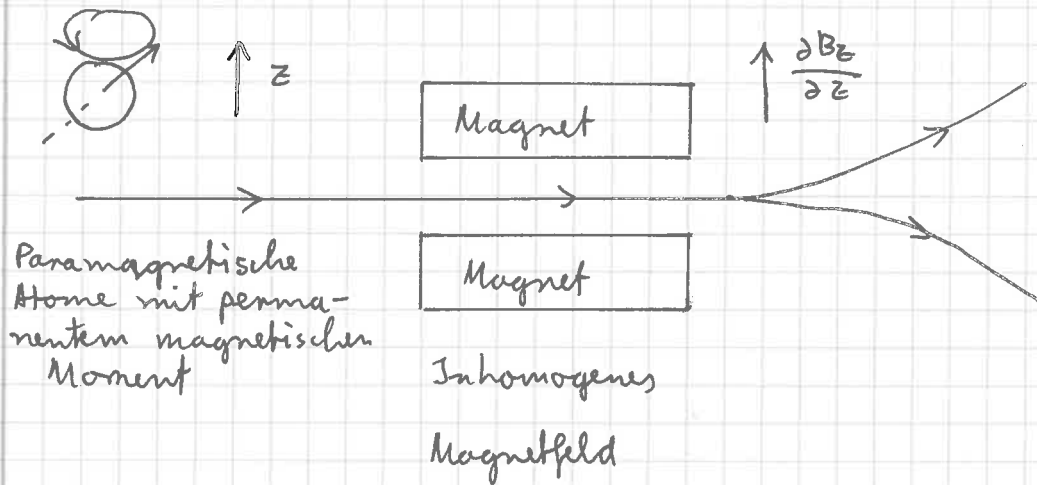 z
∂Bz
∂z
Magnet
Magnet
Paramagnetische
Atome mit perma-
nentem magnetischen
Moment
Inhomogenes
Magnetfeld